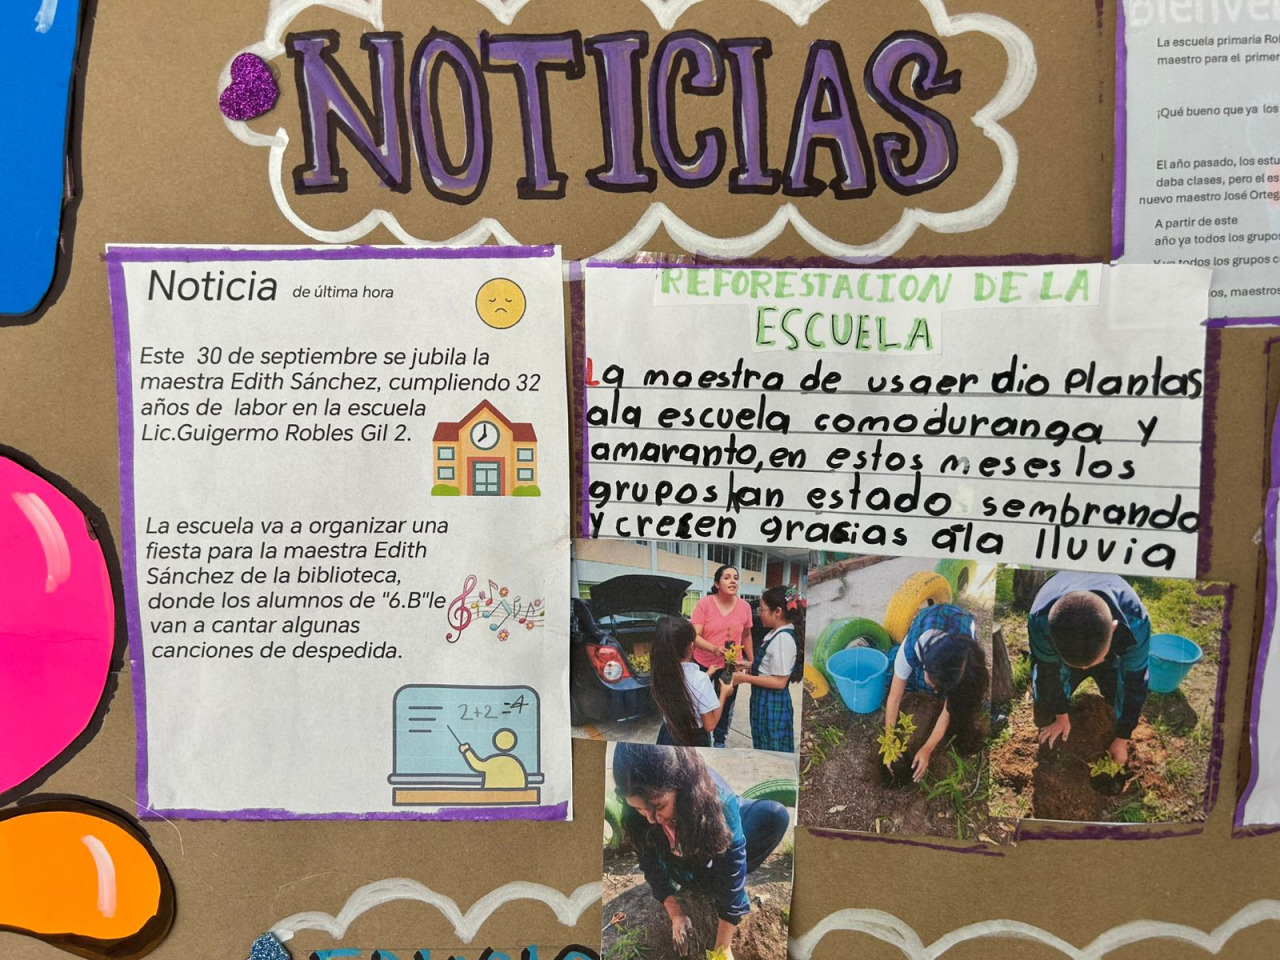 NOTICIAS
Noticia de última hora
Este 30 de septiembre se jubila la
maestra Edith Sánchez, cumpliendo 32
años de labor en la escuela
Lic.Guigermo Robles Gil 2.
La escuela va a organizar una
fiesta para la maestra Edith
Sánchez de la biblioteca,
donde los alumnos de "6.B"le
van a cantar algunas
canciones de despedida.
2+2=4
REFORESTACION DE LA
ESCUELA
La maestra de usaer dio Plantas
ala escuela como duranga y
amaranto, en estos meses los
grupos han estado sembrando
y crecen gracias ala lluvia
La escuela primaria
maestro para el primer
¡Qué bueno que ya los
El año pasado, los
daba clases, pero el
nuevo maestro José
A partir de este
año ya todos los grupos
todos los grupos
maestros